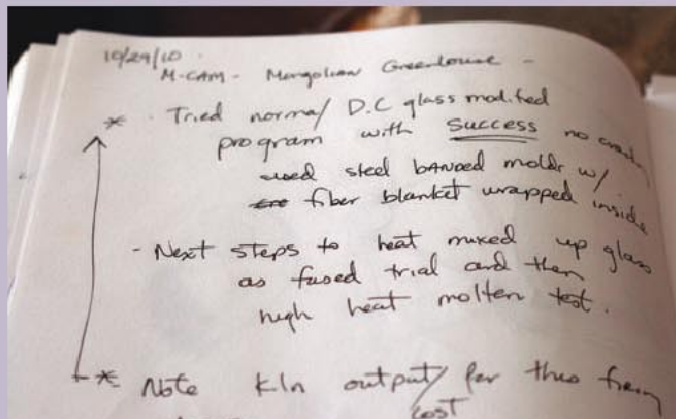 10/29/10
M-CAM - Mongolian Greenhouse -
* . Tried normal D.C glass modified
program with Success no
used steel banded molds w/
fiber blanket wrapped inside
- Next steps to heat mixed up glass
as fused trial and then
high heat molten test.
* Note kln output/ for this
cost